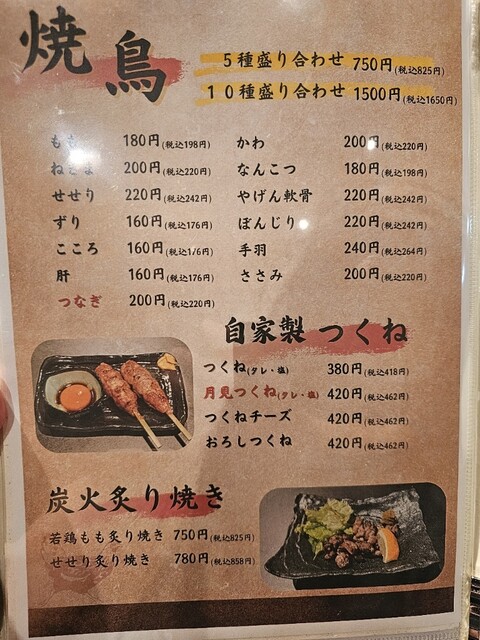 焼鳥
5種盛り合わせ 750円(税込825円)
10種盛り合わせ 1500円(税込1650円)
もも 180円(税込198円)
ねぎま 200円(税込220円)
せせり 220円(税込242円)
ずり 160円(税込176円)
こころ 160円(税込176円)
肝 160円(税込176円)
つなぎ 200円(税込220円)
かわ 200円(税込220円)
なんこつ 180円(税込198円)
やげん軟骨 220円(税込242円)
ぼんじり 220円(税込242円)
手羽 240円(税込264円)
ささみ 200円(税込220円)
自家製 つくね
つくね(タレ・塩) 380円(税込418円)
月見つくね(タレ・塩) 420円(税込462円)
つくねチーズ 420円(税込462円)
おろしつくね 420円(税込462円)
炭火炙り焼き
若鶏もも炙り焼き 750円(税込825円)
せせり炙り焼き 780円(税込858円)